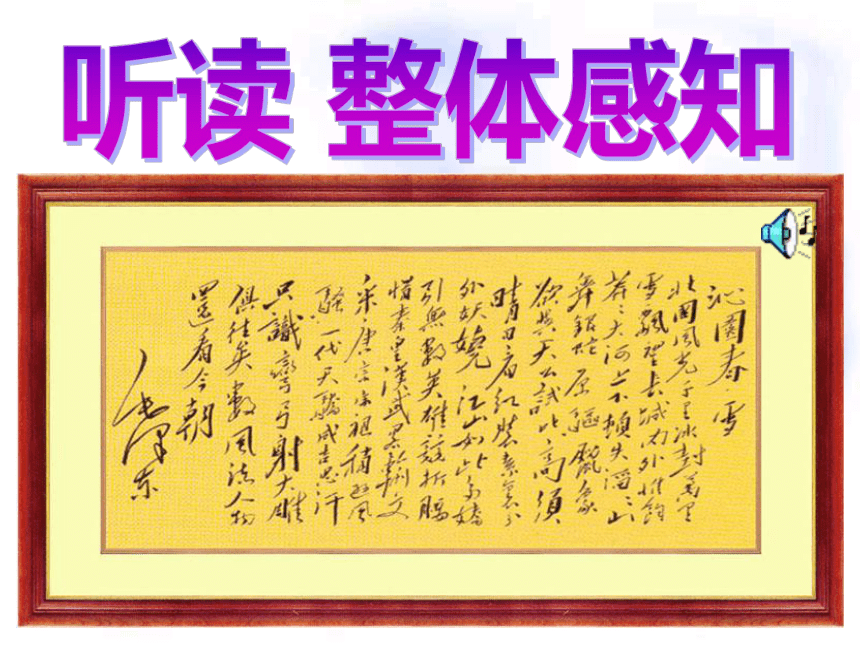 听读 整体感知
沁園春 雪
北國風光千里冰封萬里
雪飄望長城内外惟餘
莽莽大河上下頓失滔滔山
舞銀蛇原驅臘象
欲與天公試比高須
晴日看紅裝素裹分
外妖嬈 江山如此多嬌
引無數英雄競折腰
惜秦皇漢武略輸文
采唐宗宋祖稍遜風
騷一代天驕成吉思汗
只識彎弓射大雕
俱往矣數風流人物
還看今朝
毛澤東